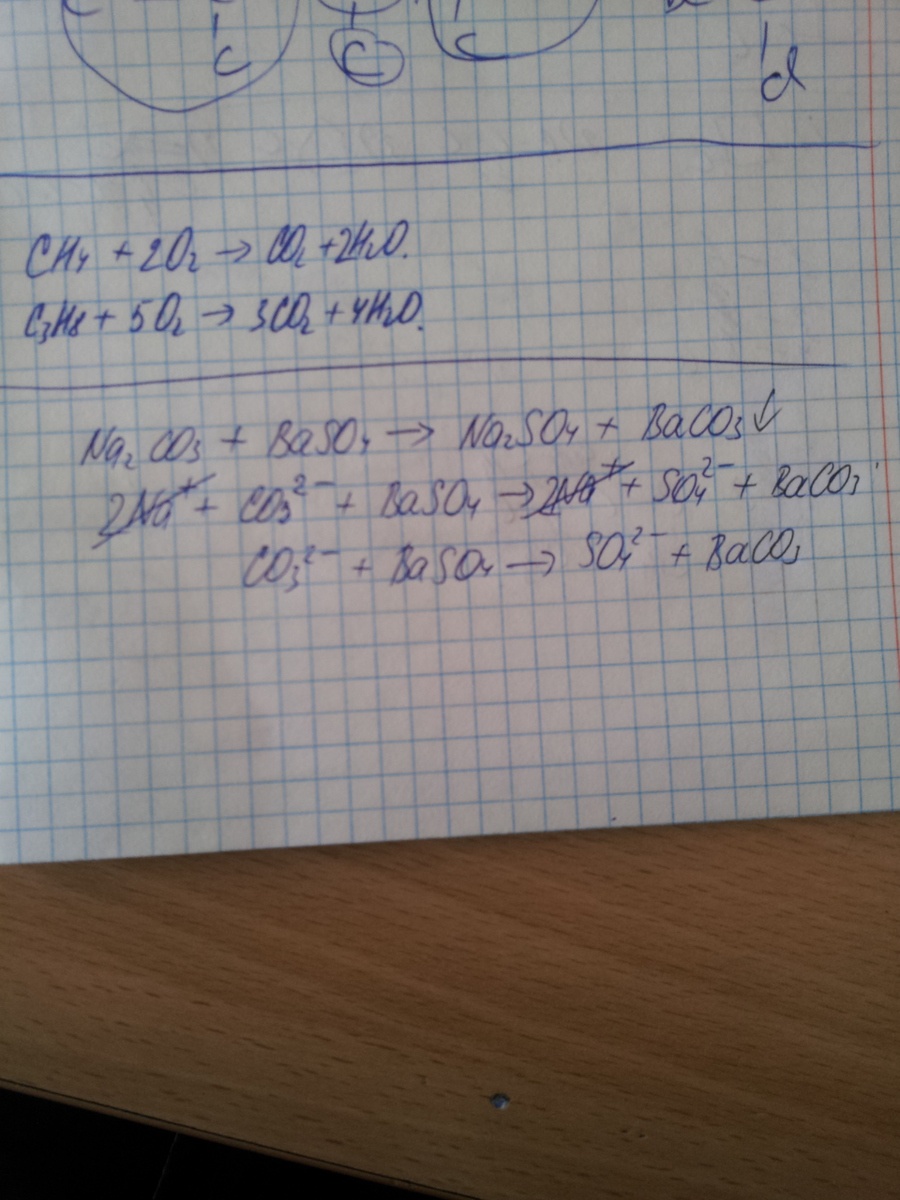 C C C d
CH₄ + 2O₂ → CO₂ + 2H₂O.
C₃H₈ + 5O₂ → 3CO₂ + 4H₂O.
Na₂CO₃ + BaSO₄ → Na₂SO₄ + BaCO₃↓
2Na⁺ + CO₃²⁻ + BaSO₄ → 2Na⁺ + SO₄²⁻ + BaCO₃
CO₃²⁻ + BaSO₄ → SO₄²⁻ + BaCO₃